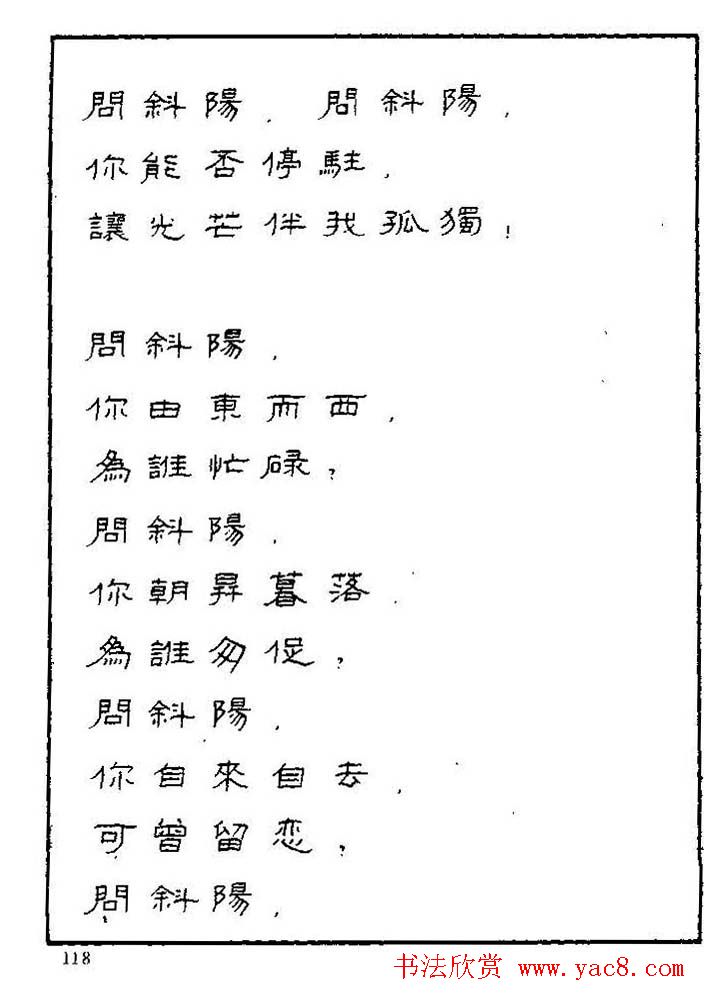 問斜陽，問斜陽，
你能否停駐，
讓光芒伴我孤獨！
問斜陽，
你由東而西，
為誰忙碌？
問斜陽，
你朝昇暮落，
為誰匆促？
問斜陽，
你自來自去，
可曾留恋？
問斜陽，
118
书法欣赏 www.yac8.com